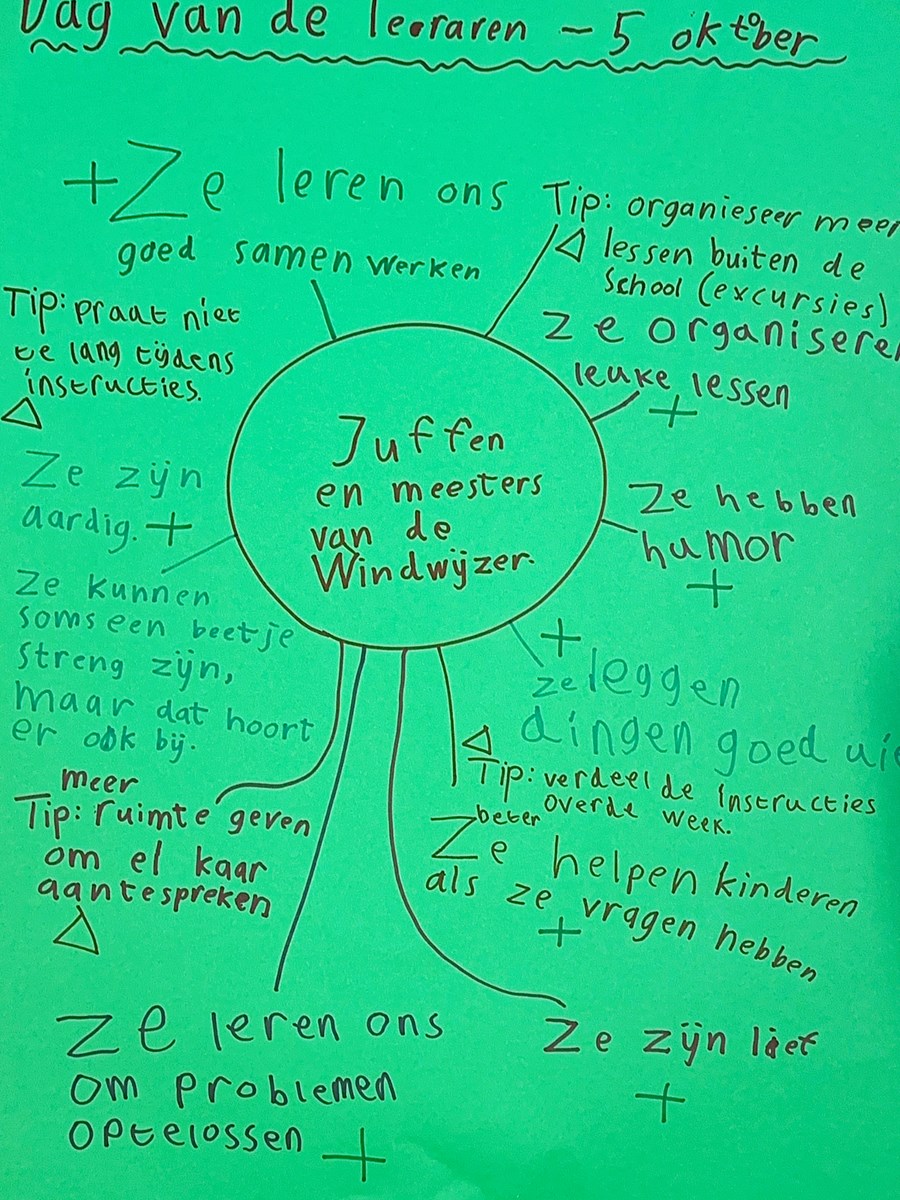 Dag van de leeraren - 5 oktober
+ Ze leren ons
goed samen werken
Tip: organieseer meer
lessen buiten de
school (excursies)
ze organiseren
leuke lessen
+
Tip: praat niet
te lang tijdens
instructies.
Juffen
en meesters
van de
Windwijzer.
Ze zijn
aardig. +
Ze hebben
humor
+
Ze kunnen
soms een beetje
streng zijn,
maar dat hoort
er ook bij.
+
ze leggen
dingen goed uit
Tip: verdeel de instructies
beter over de week.
meer
Tip: ruimte geven
om el kaar
aantespreken
Ze helpen kinderen
als ze vragen hebben
+
Ze leren ons
om problemen
optelossen +
Ze zijn lief
+